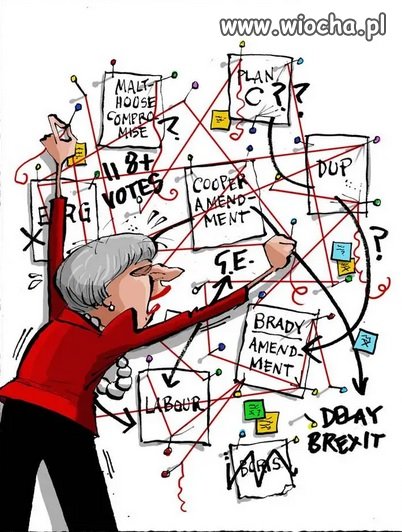 www.wiocha.pl
MALT-
HOUSE
COMPRO
MISE
?
PLAN
C ? ?
118+
VOTES
DUP
COOPER
AMEND-
MENT
ERG
X
?
G.E.
BRADY
AMEND-
MENT
LABOUR
DELAY
BREXIT
BORIS